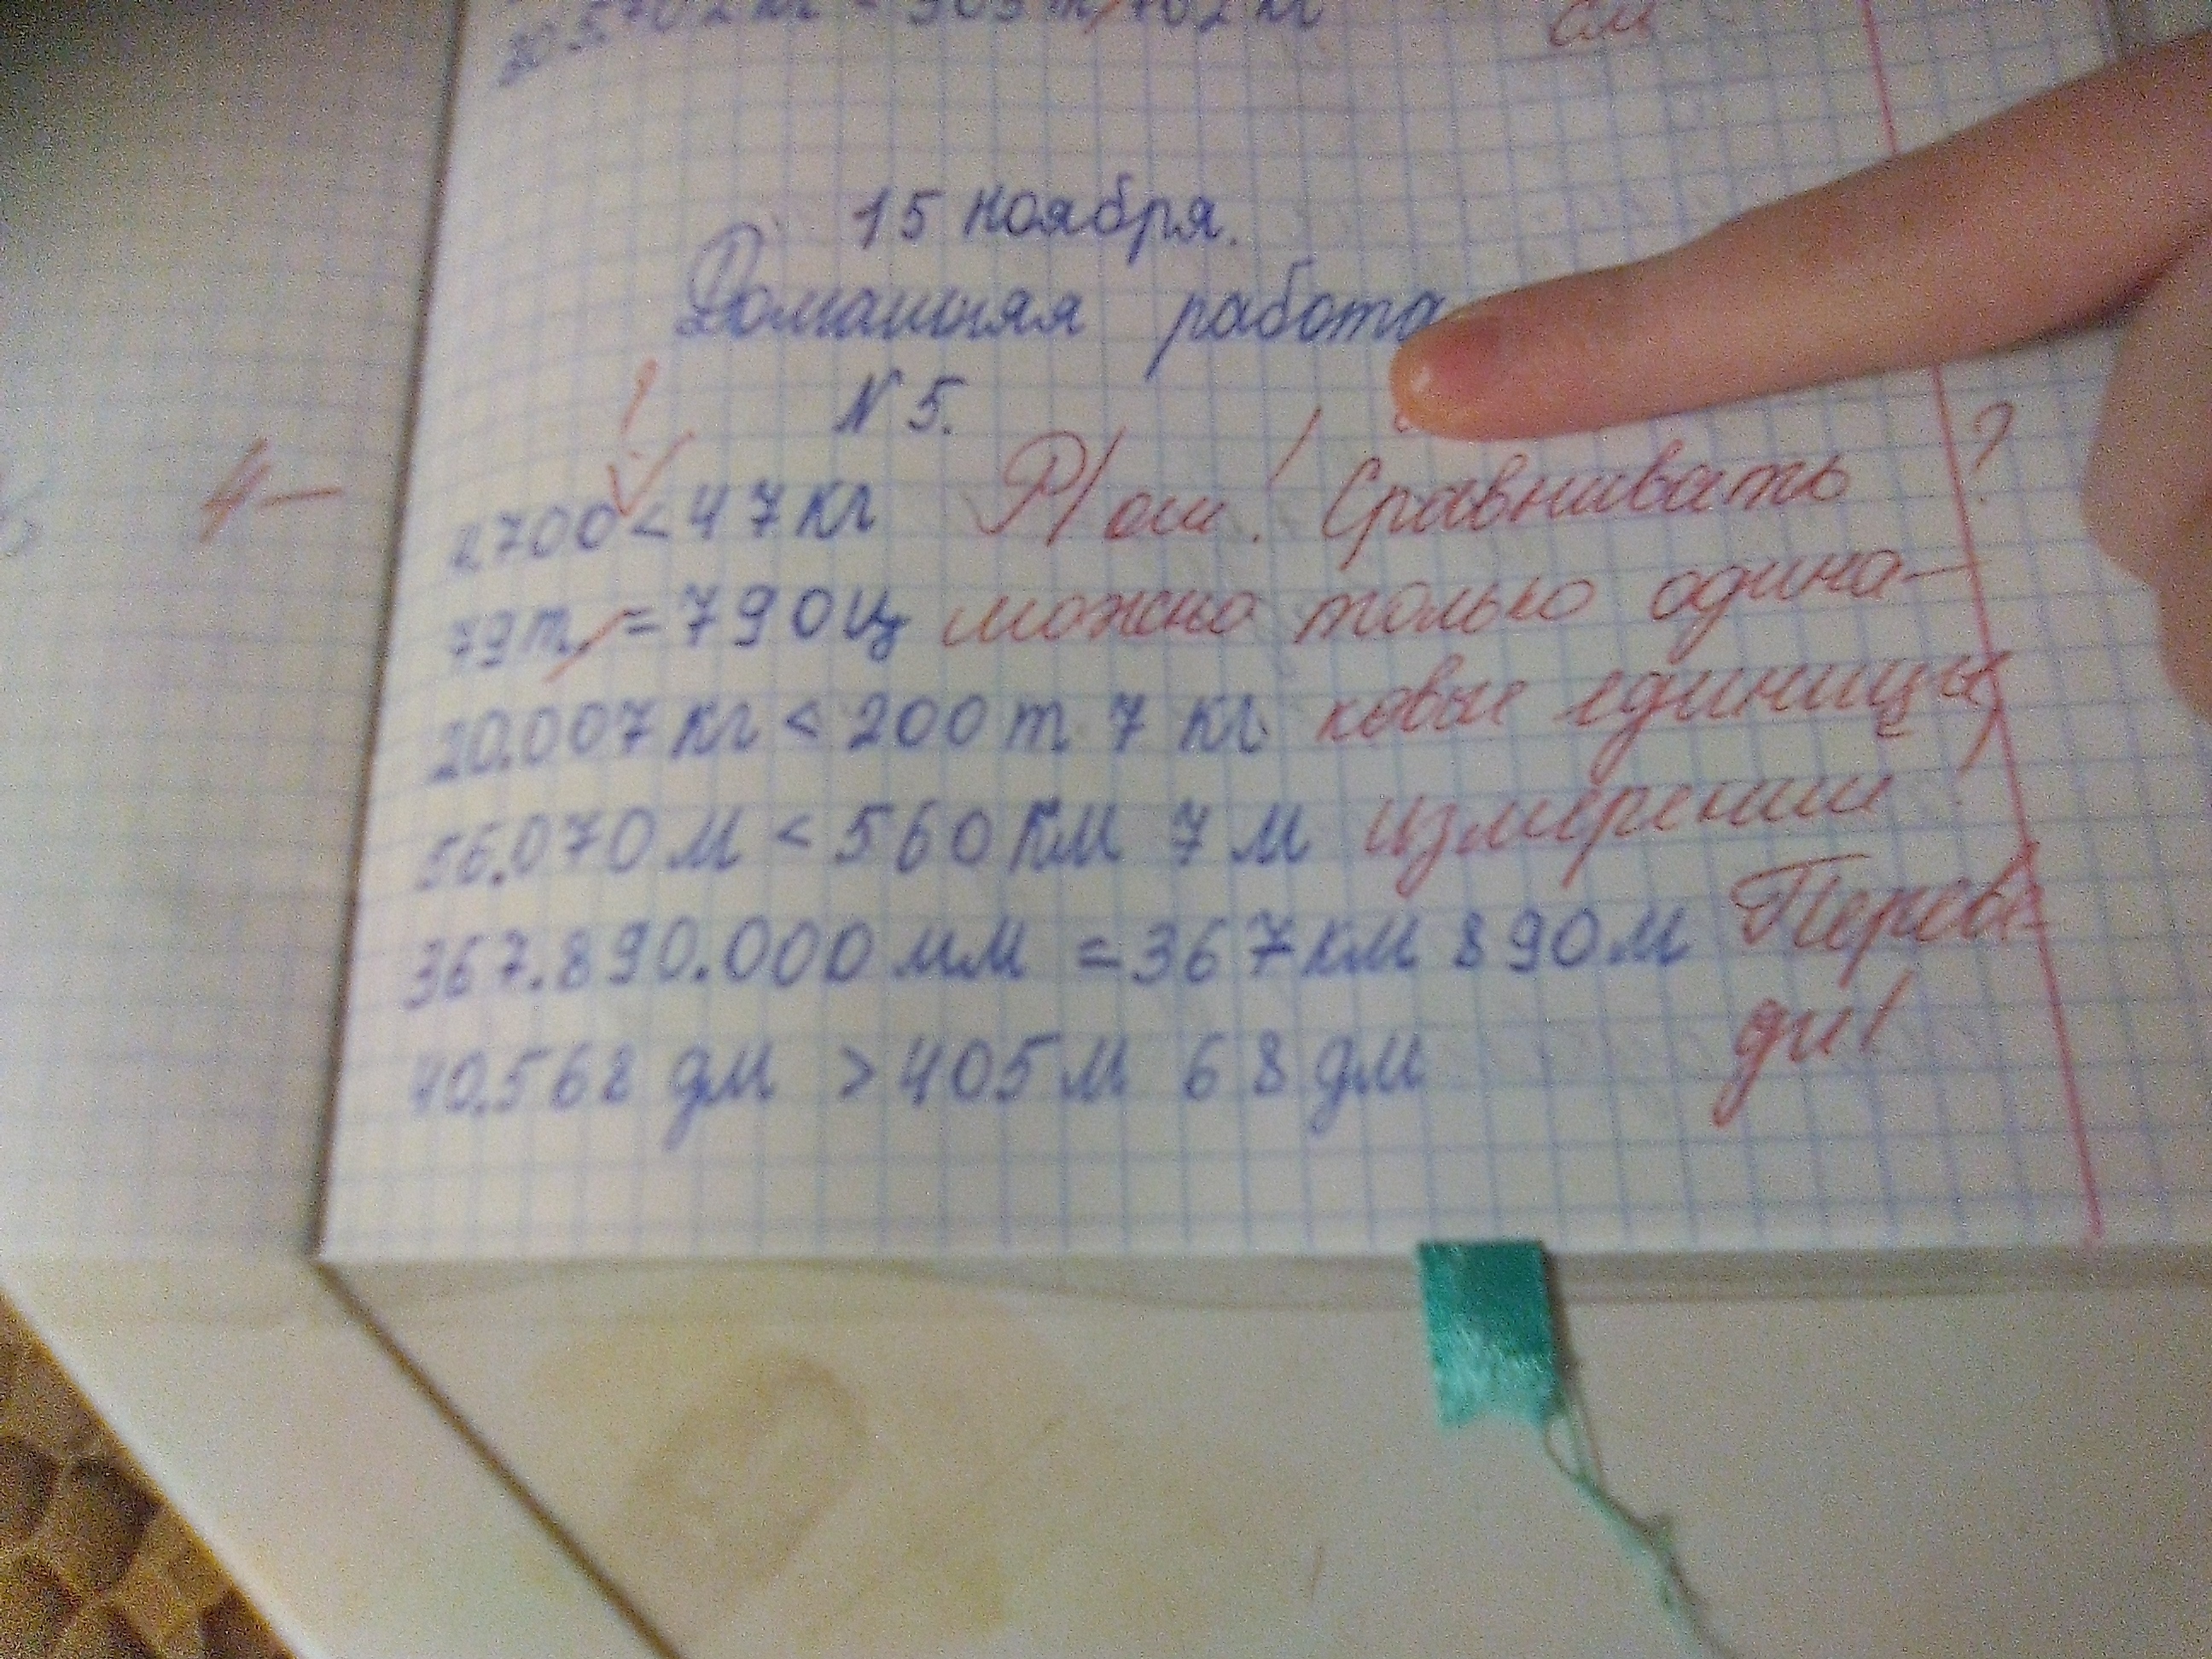 см
15 ноября.
Домашняя работа
N 5.
?
4 –
4700 < 47 кг Р/ ош! Сравнивать ?
79 т. = 790 ц можно только одина-
20.007 кг < 200 т 7 кг ковые единицы
56.070 м < 560 км 7 м измерения!
367.890.000 мм = 367 км 890 м Переве-
40.568 дм > 405 м 68 дм ди!